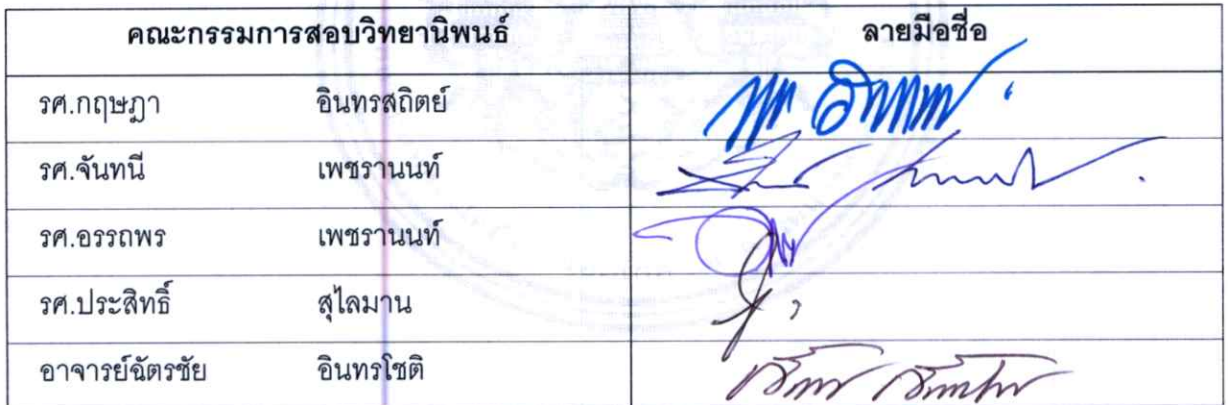 คณะกรรมการสอบวิทยานิพนธ์ ลายมือชื่อ
รศ.กฤษฎา อินทรสถิตย์
รศ.จันทนี เพชรานนท์
รศ.อรรถพร เพชรานนท์
รศ.ประสิทธิ์ สุไลมาน
อาจารย์ฉัตรชัย อินทรโชติ